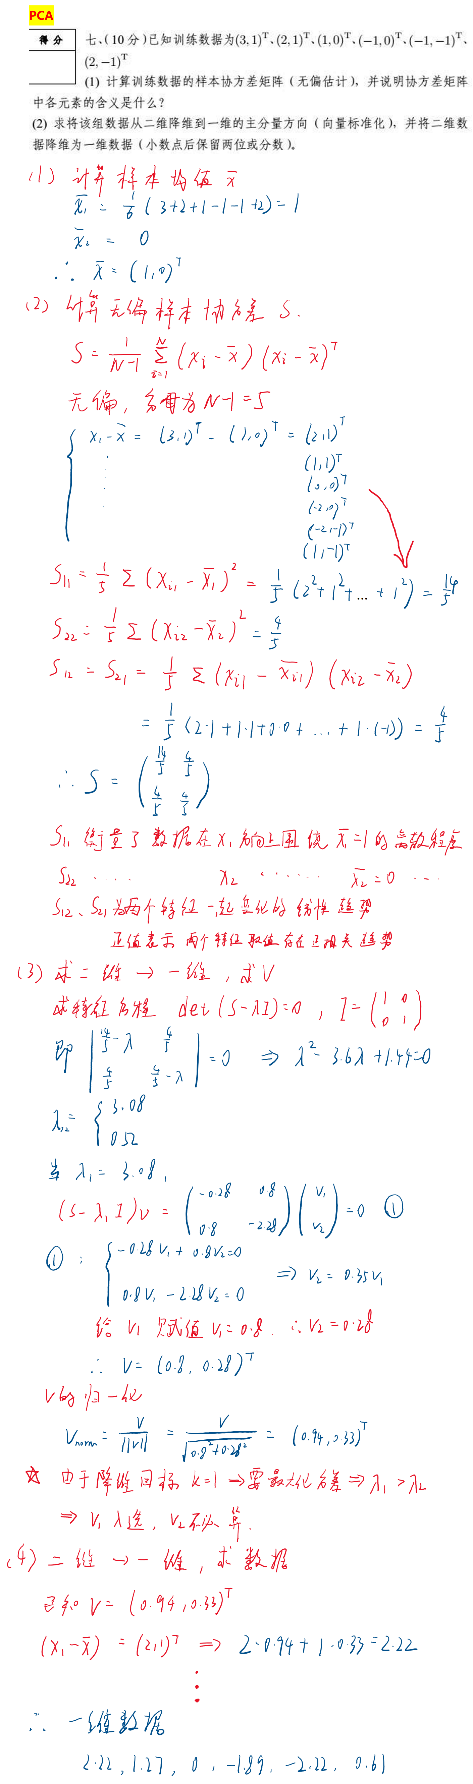 PCA
得分
七、(10 分)已知训练数据为(3,1)ᵀ、(2,1)ᵀ、(1,0)ᵀ、(−1,0)ᵀ、(−1,−1)ᵀ、
(2,−1)ᵀ
(1) 计算训练数据的样本协方差矩阵（无偏估计），并说明协方差矩阵
中各元素的含义是什么?
(2) 求将该组数据从二维降维到一维的主分量方向（向量标准化），并将二维数
据降维为一维数据（小数点后保留两位或分数）。
(1) 计算样本均值 x̄
x̄₁ = 1/6 (3+2+1-1-1+2) = 1
x̄₂ = 0
∴ x̄ = (1,0)ᵀ
(2) 计算无偏样本协方差 S.
S = 1/(N-1) Σᵢ₌₁ᴺ (xᵢ - x̄)(xᵢ - x̄)ᵀ
无偏, 分母为 N-1 = 5
x₁-x̄ = (3,1)ᵀ - (1,0)ᵀ = (2,1)ᵀ
(1,1)ᵀ
(0,0)ᵀ
(-2,0)ᵀ
(-2,-1)ᵀ
(1,-1)ᵀ
S₁₁ = 1/5 Σ (xᵢ₁ - x̄₁)² = 1/5 (2²+1²+...+1²) = 14/5
S₂₂ = 1/5 Σ (xᵢ₂ - x̄₂)² = 4/5
S₁₂ = S₂₁ = 1/5 Σ (xᵢ₁ - x̄ᵢ₁)(xᵢ₂ - x̄₂)
= 1/5 (2·1+1·1+0·0+...+1·(-1)) = 4/5
∴ S = (14/5 4/5
4/5 4/5)
S₁₁ 衡量了数据在 x₁ 方向上围绕 x̄₁=1 的离散程度
S₂₂ .... x₂ ...... x̄₂=0 ...
S₁₂、S₂₁ 为两个特征一起变化的线性趋势
正值表示两个特征取值存在正相关趋势
(3) 求二维 → 一维, 求V
求特征方程 det(S-λI)=0 , I=(1 0
0 1)
即 |14/5-λ 4/5
4/5 4/5-λ| = 0 ⇒ λ²-3.6λ+1.44=0
λ₁,₂ = { 3.08
0.52
当 λ₁ = 3.08,
(S-λ₁I)v = (-0.28 0.8
0.8 -2.28)(v₁
v₂) = 0 ①
① : { -0.28v₁ + 0.8v₂=0
0.8v₁ - 2.28v₂=0 ⇒ v₂ = 0.35v₁
给 v₁ 赋值 v₁=0.8. ∴ v₂=0.28
∴ v = (0.8, 0.28)ᵀ
v的归一化
Vnorm = v/||v|| = v/√(0.8²+0.28²) = (0.94, 0.33)ᵀ
☆ 由于降维目标 k=1 → 要最大化方差 ⇒ λ₁ > λ₂
⇒ v₁ 入选, v₂ 不必算.
(4) 二维 → 一维, 求数据
已知 v = (0.94, 0.33)ᵀ
(x₁-x̄) = (2,1)ᵀ ⇒ 2·0.94 + 1·0.33 = 2.22
∴ 一维数据
2.22, 1.27, 0, -1.89, -2.22, 0.61